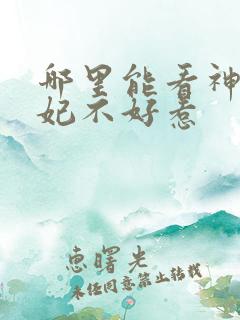 哪里能看神
妃不好惹
惠曙光
未经同意禁止转载